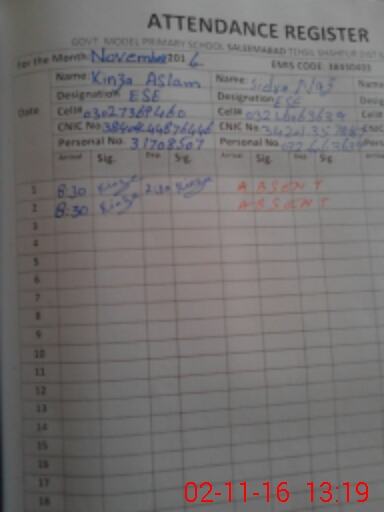 ATTENDANCE REGISTER
GOVT. MODEL PRIMARY SCHOOL SALEEMABAD TEHSIL
For the Month November 2016 EMIS CODE:
Name: Kinza Aslam Name: Sidra Naz Name
Designation ESE Designation ESE
Date Cell# 03027369460 Cell#
CNIC No. CNIC No.
Personal No. 31708507 Personal No.
Arrival Sig. Dep. Sig. Arrival Sig. Dep. Sig.
1 8:30 Kinza 2:30 Kinza ABSENT
2 8:30 Kinza ABSENT
3
4
5
6
7
8
9
10
11
12
13
14
15
16
17
18
02-11-16 13:19